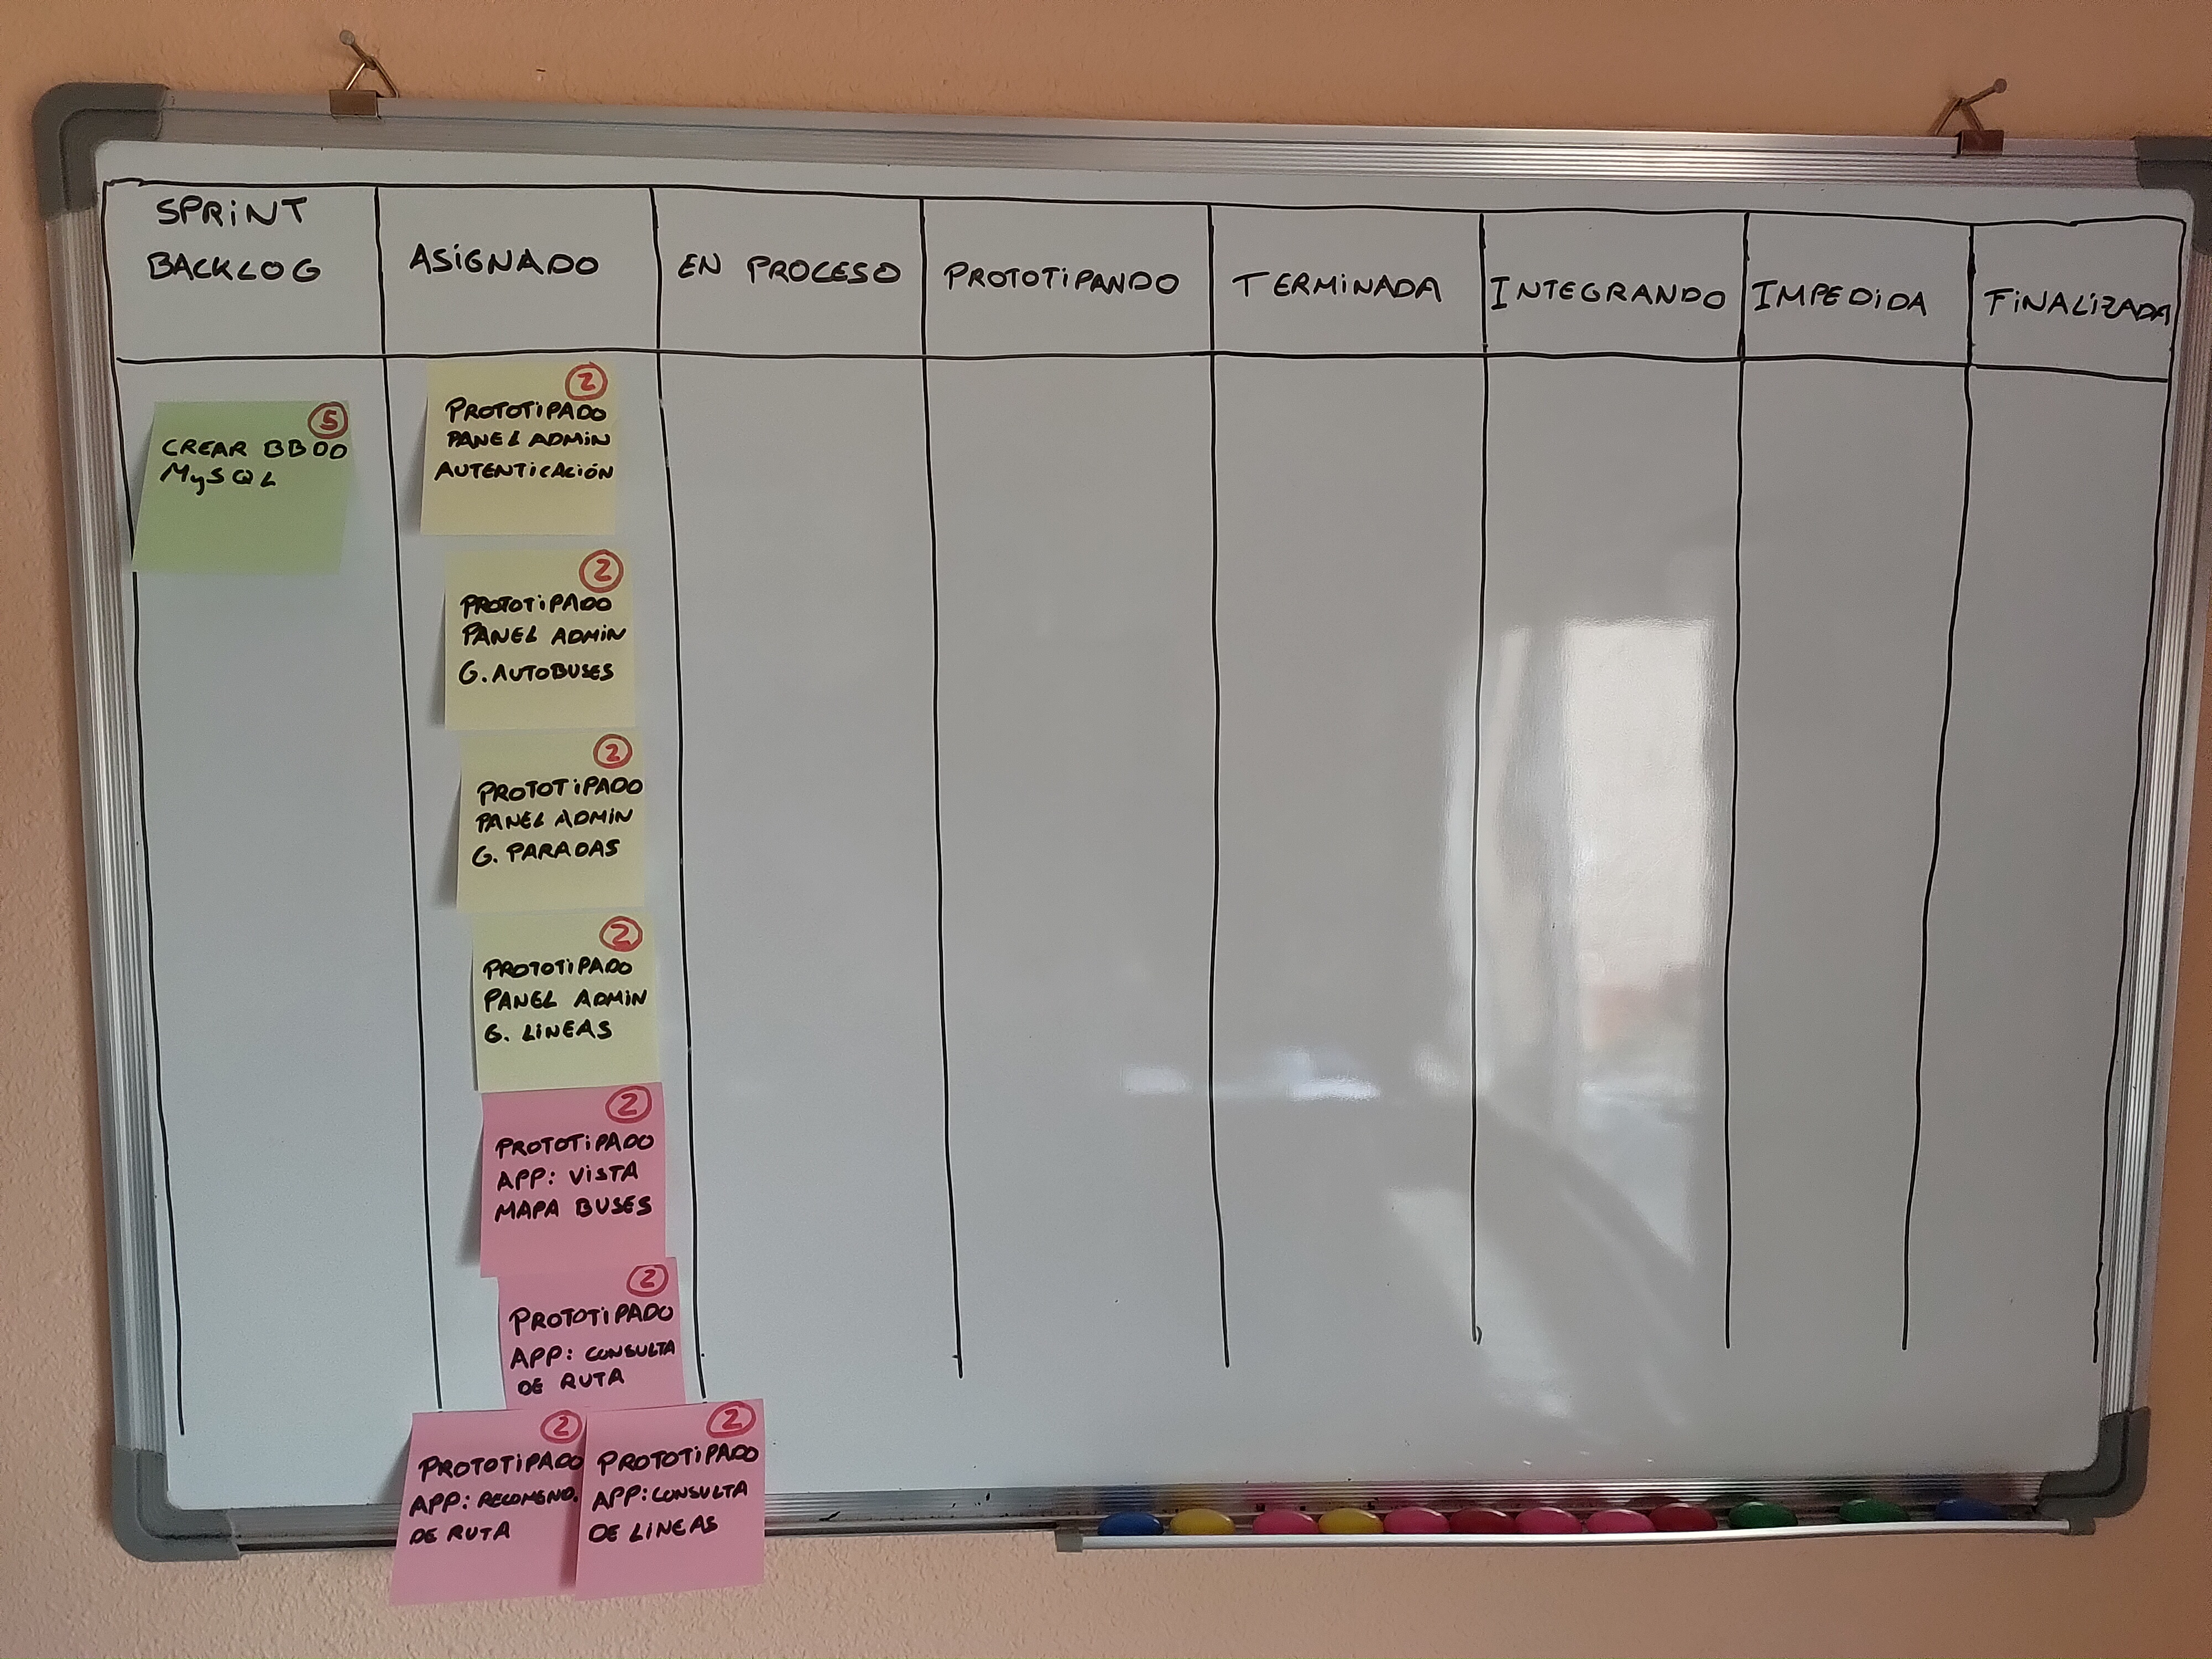 SPRINT
BACKLOG
ASIGNADO
EN PROCESO
PROTOTIPANDO
TERMINADA
INTEGRANDO
IMPEDIDA
FINALIZADA
5
CREAR BBDD
MySQL
2
PROTOTIPADO
PANEL ADMIN
AUTENTICACIÓN
2
PROTOTIPADO
PANEL ADMIN
G. AUTOBUSES
2
PROTOTIPADO
PANEL ADMIN
G. PARADAS
2
PROTOTIPADO
PANEL ADMIN
G. LINEAS
2
PROTOTIPADO
APP: VISTA
MAPA BUSES
2
PROTOTIPADO
APP: CONSULTA
DE RUTA
2
PROTOTIPADO
APP: RECOMEND.
DE RUTA
2
PROTOTIPADO
APP: CONSULTA
DE LINEAS